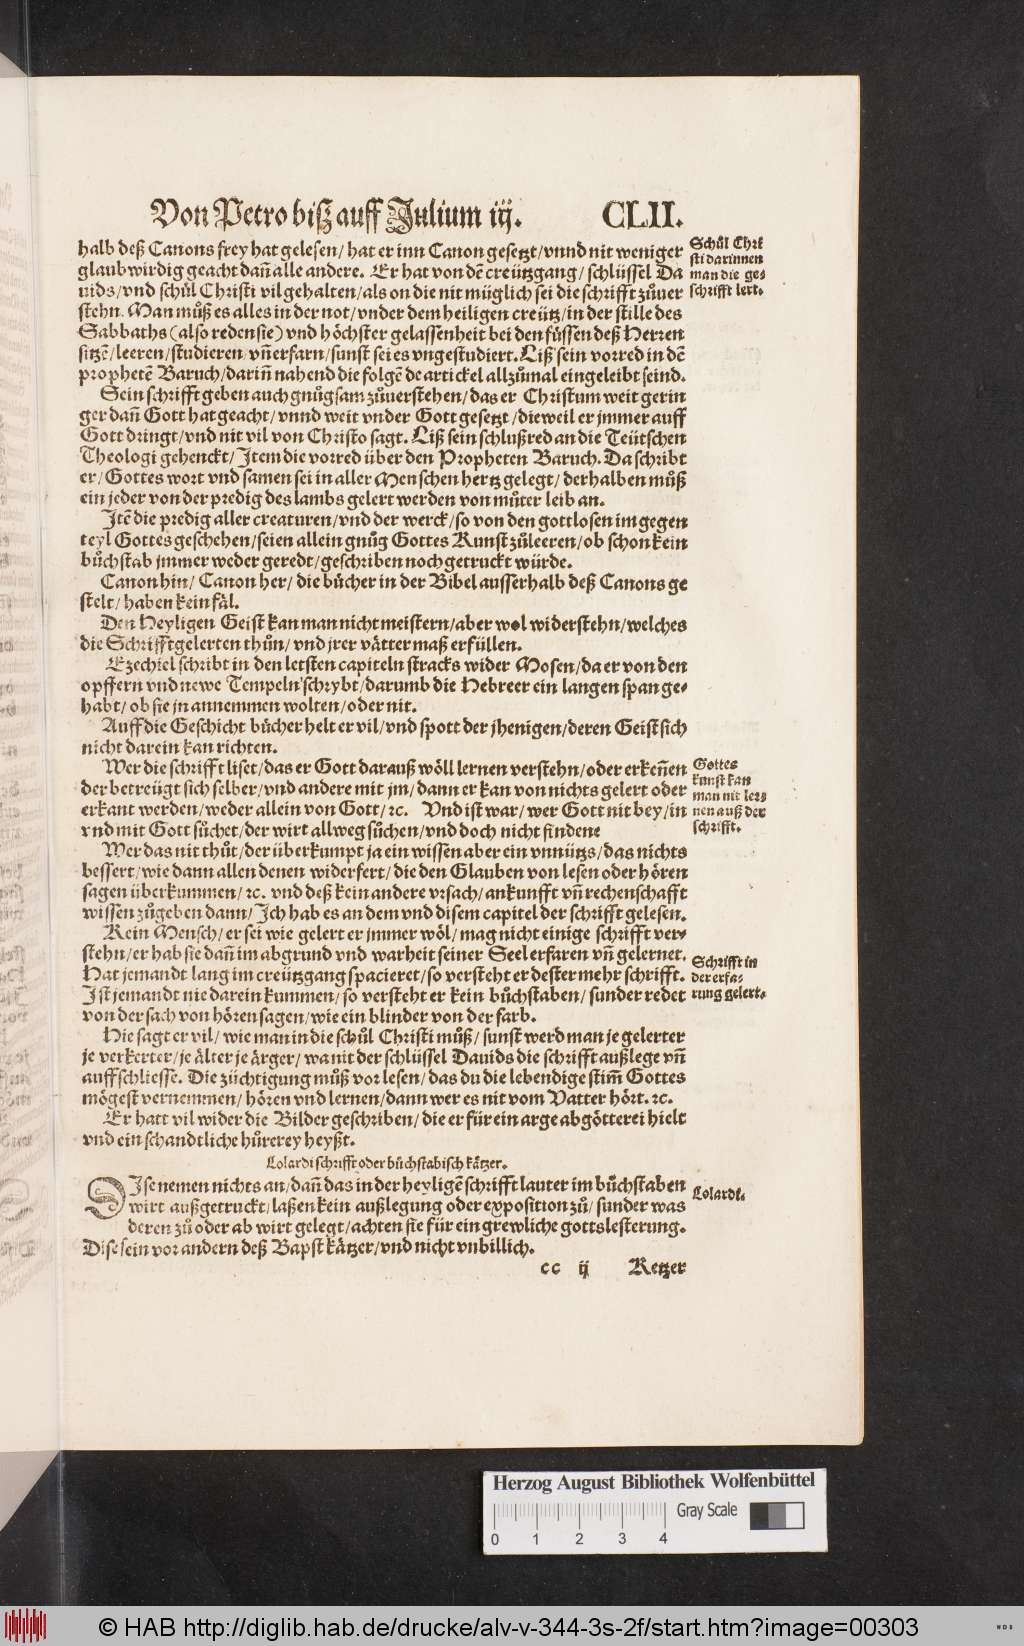 Von Petro biß auff Julium iij. CLII.
halb deß Canons frey hat gelesen/ hat er inn Canon gesetzt/ vnnd nit weniger
glaubwirdig geacht dañ alle andere. Er hat von dẽ creützgang/ schlüssel Da
uids/ vnd schůl Christi vil gehalten/ als on die nit müglich sei die schrifft zůuer
stehn. Man můß es alles in der not/ vnder dem heiligen creütz/ in der stille des
Sabbaths (also reden sie) vnd höchster gelassenheit bei den füssen deß Herren
sitzẽ/ leeren/ studieren vñ erfarn/ sunst sei es vngestudiert. Liß sein vorred in dẽ
prophetẽ Baruch/ dariñ nahend die folgẽde artickel allzůmal eingeleibt seind.
Sein schrifft geben auch gnůgsam zůuerstehen/ das er Christum weit gerin
ger dañ Gott hat geacht/ vnnd weit vnder Gott gesetzt/ dieweil er jmmer auff
Gott dringt/ vnd nit vil von Christo sagt. Liß sein schlußred an die Teütschen
Theologi gehenckt/ Item die vorred über den Propheten Baruch. Da schribt
er/ Gottes wort vnd samen sei in aller Menschen hertz gelegt/ derhalben můß
ein jeder von der predig des lambs gelert werden von můter leib an.
Itẽ die predig aller creaturen/ vnd der werck/ so von den gottlosen im gegen
teyl Gottes geschehen/ seien allein gnůg Gottes Kunst zůleeren/ ob schon kein
bůchstab jmmer weder geredt/ geschriben noch getruckt würde.
Canon hin/ Canon her/ die bůcher in der Bibel ausserhalb deß Canons ge
stelt/ haben kein fäl.
Den Heyligen Geist kan man nicht meistern/ aber wol widerstehn/ welches
die Schrifftgelerten thůn/ vnd jrer vätter maß erfüllen.
Ezechiel schribt in den letsten capiteln stracks wider Mosen/ da er von den
opffern vnd newe Tempeln schrybt/ darumb die Hebreer ein langen span ge-
habt/ ob sie jn annemmen wolten/ oder nit.
Auff die Geschicht bůcher helt er vil/ vnd spott der jhenigen/ deren Geist sich
nicht darein kan richten.
Wer die schrifft liset/ das er Gott darauß wöll lernen verstehn/ oder erkeñen
der betreügt sich selber/ vnd andere mit jm/ dann er kan von nichts gelert oder
erkant werden/ weder allein von Gott/ ꝛc. Vnd ist war/ wer Gott nit bey/ in
vnd mit Gott sůchet/ der wirt allweg sůchen/ vnd doch nicht findene
Wer das nit thůt/ der überkumpt ja ein wissen aber ein vnnützs/ das nichts
bessert/ wie dann allen denen widerfert/ die den Glauben von lesen oder hören
sagen überkummen/ ꝛc. vnd deß kein andere vrsach/ ankunfft vñ rechenschafft
wissen zůgeben dann/ Ich hab es an dem vnd disem capitel der schrifft gelesen.
Kein Mensch/ er sei wie gelert er jmmer wöl/ mag nicht einige schrifft ver-
stehn/ er hab sie dañ im abgrund vnd warheit seiner Seel erfaren vñ gelernet.
Hat jemandt lang im creützgang spacieret/ so versteht er dester mehr schrifft.
Ist jemandt nie darein kummen/ so versteht er kein bůchstaben/ sunder redet
von der sach von hören sagen/ wie ein blinder von der farb.
Hie sagt er vil/ wie man in die schůl Christi můß/ sunst werd man je gelerter
je verkerter/ je älter je ärger/ wa nit der schlüssel Dauids die schrifft außlege vñ
auffschliesse. Die züchtigung můß vor lesen/ das du die lebendige stim̃ Gottes
mögest vernemmen/ hören vnd lernen/ dann wer es nit vom Vatter hört. ꝛc.
Er hatt vil wider die Bilder geschriben/ die er für ein arge abgötterei hielt
vnd ein schandtliche hůrerey heyßt.
Lolardi schrifft oder bůchstabisch kätzer.
DIse nemen nichts an/ dañ das in der heyligẽ schrifft lauter im bůchstaben
wirt außgetruckt/ laßen kein außlegung oder exposition zů/ sunder was
deren zů oder ab wirt gelegt/ achten sie für ein grewliche gottslesterung.
Dise sein vor andern deß Bapst kätzer/ vnd nicht vnbillich.
cc ij Ketzer
Schůl Chri
sti darinnen
man die ge-
schrifft lert.
Gottes
kunst kan
man nit ler-
nen auß der
schrifft.
Schrifft in
der erfa-
rung gelert.
Lolardi.
Herzog August Bibliothek Wolfenbüttel
Gray Scale
0 1 2 3 4
© HAB http://diglib.hab.de/drucke/alv-v-344-3s-2f/start.htm?image=00303